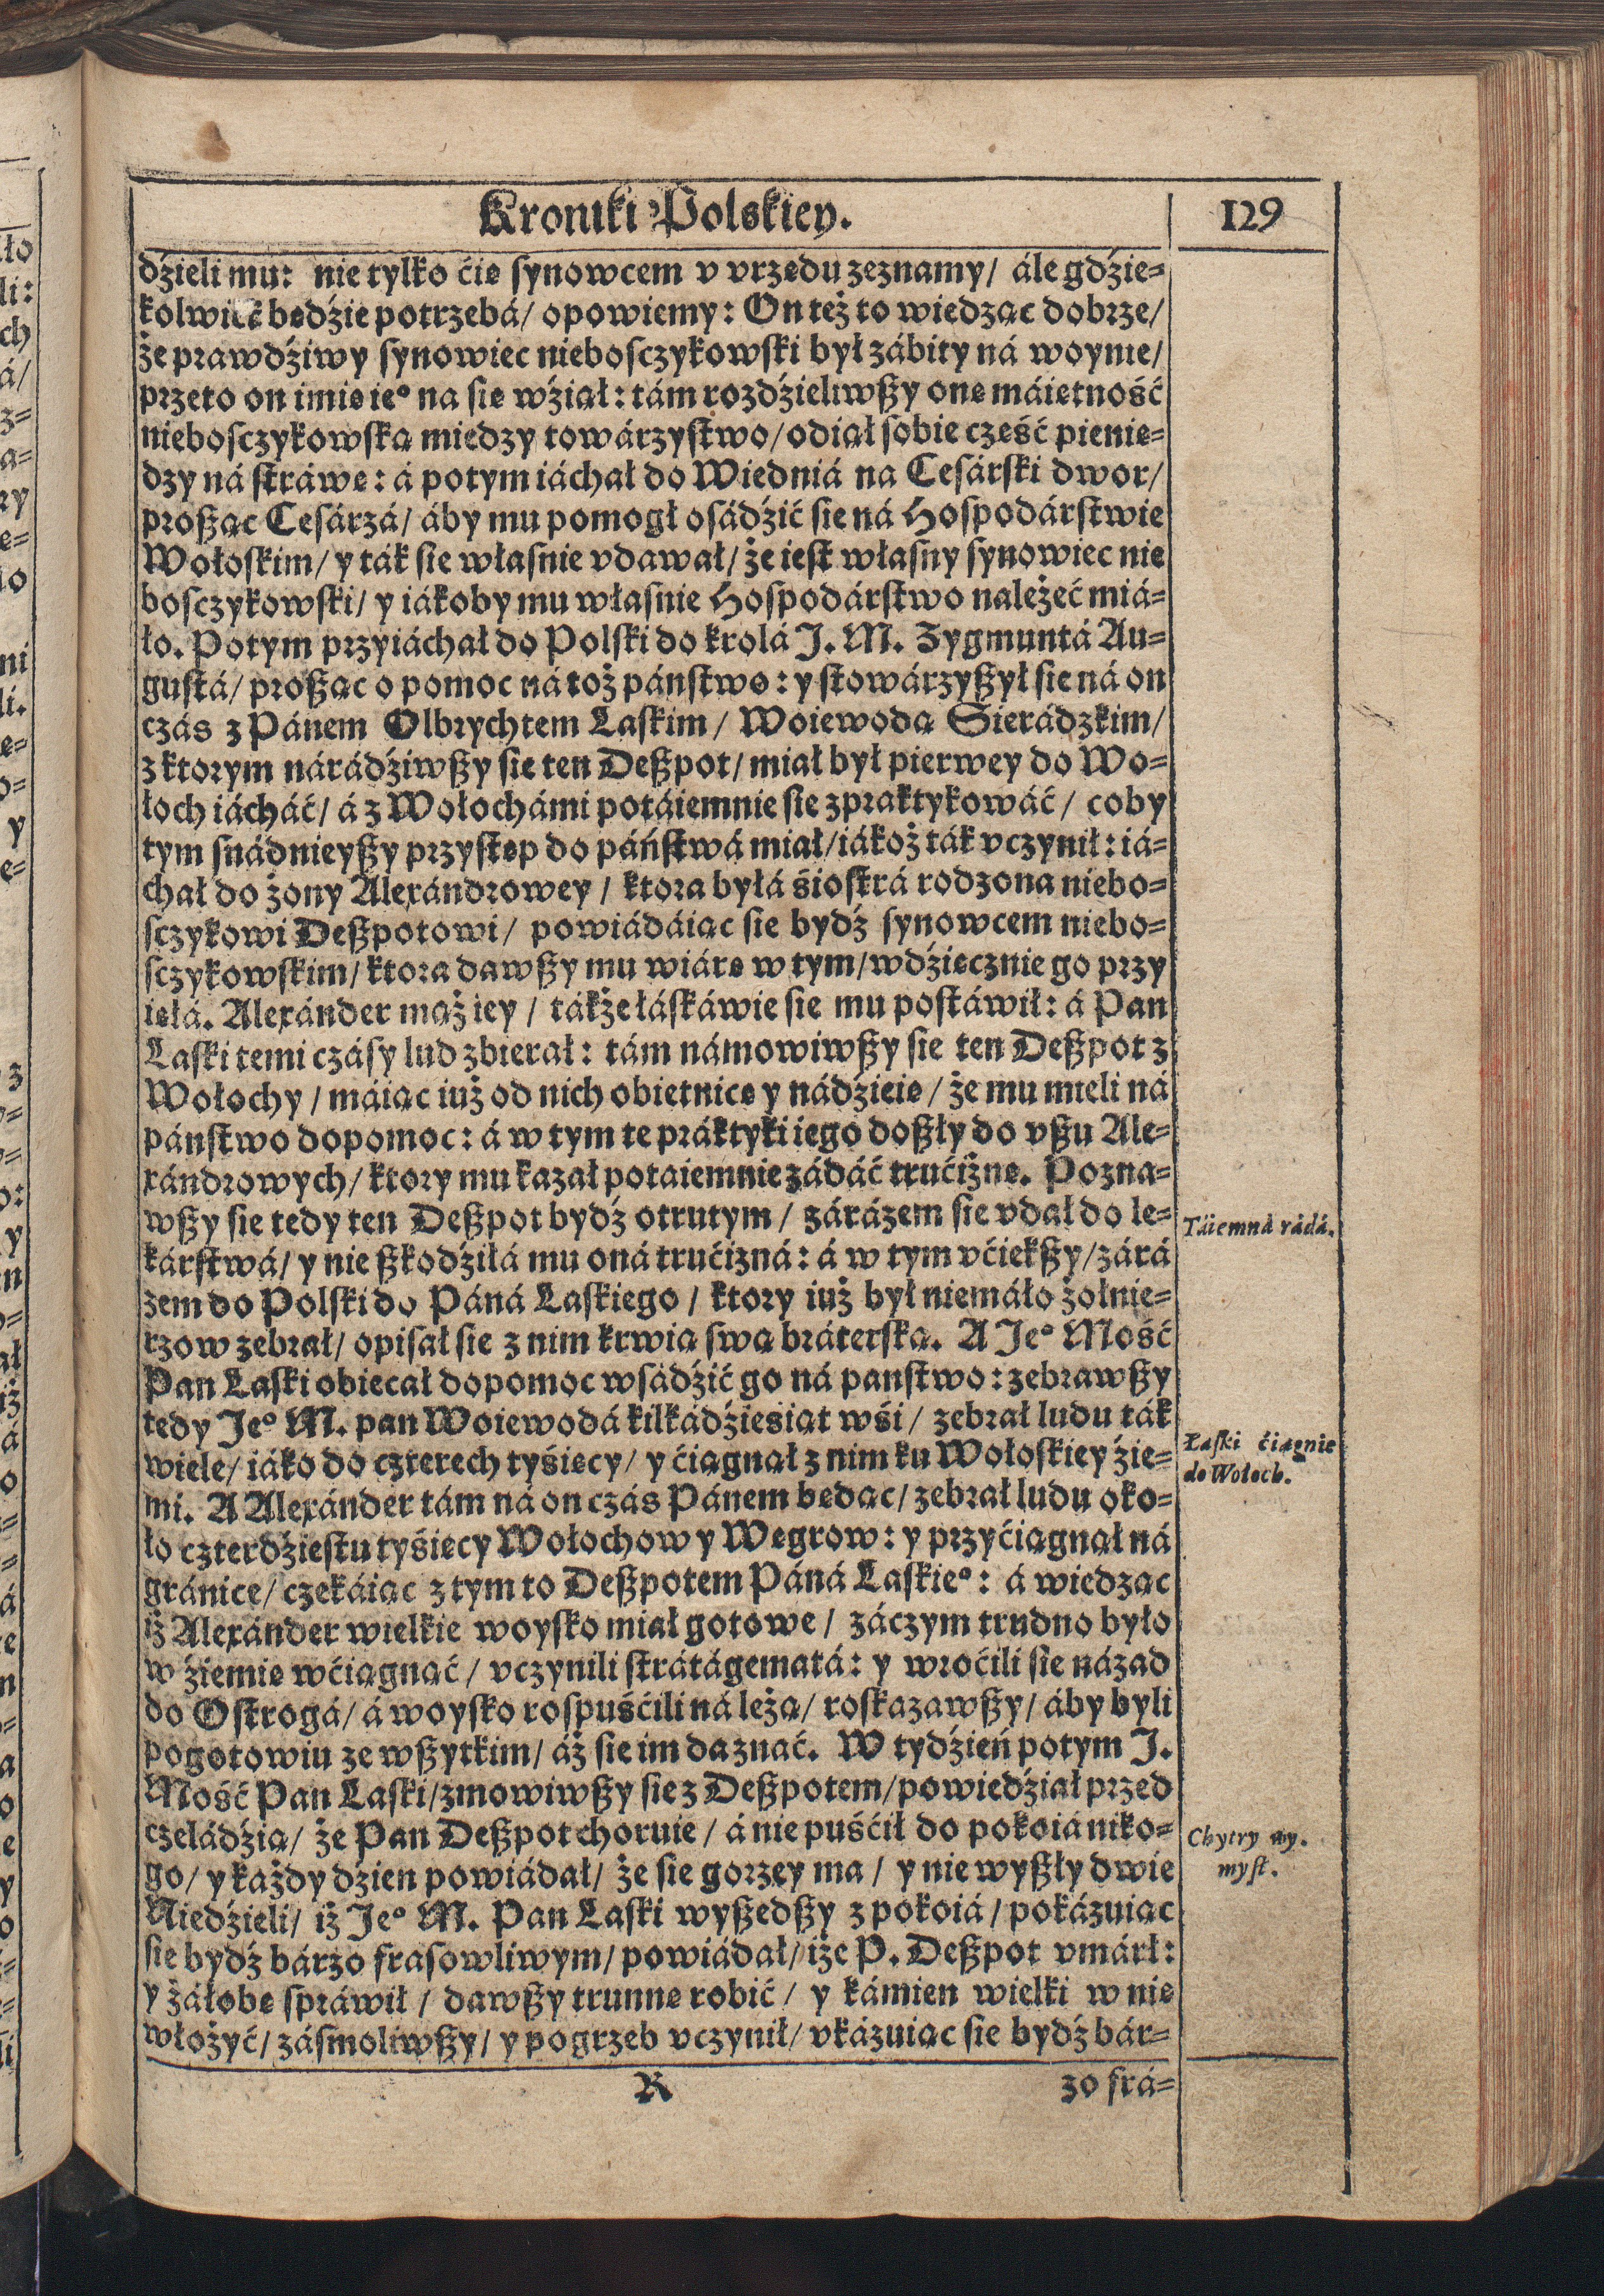 Kroniki Polskiey.
129
dźieli mu: nie tylko ćię synowcem v vrzędu zeznamy/ ále gdźie⸗
kolwiek będźie potrzebá/ opowiemy: On też to wiedząc dobrze/
że prawdźiwy synowiec nieboſczykowſki był zábity ná woynie/
przeto on imię ieº na ſię wźiął: tám rozdźieliwßy onę máiętność
nieboſczykowſką miedzy towárzyſtwo/ odiął ſobie część pienię⸗
dzy ná ſtráwę: á potym iáchał do Wiedniá na Ceſárſki dwor/
proßąc Ceſárzá/ áby mu pomogł oſádźić ſię ná Hoſpodárſtwie
Wołoſkim/ y ták ſię właſnie vdawał/ że ieſt właſny ſynowiec nie
boſczykowſki/ y iákoby mu właſnie Hoſpodárſtwo należeć miá⸗
ło. Potym przyiáchał do Polſki do krolá J. M. Zygmuntá Au⸗
guſtá/ proßąc o pomoc ná toż páńſtwo: y ſtowárzyßył ſię ná on
czás z Pánem Olbrychtem Laſkim/ Woiewodą Sierádzkim/
z ktorym nárádźiwßy ſię ten Deßpot/ miał był pierwey do Wo⸗
łoch iácháć/ á z Wołochámi potáiemnie ſię zpraktykowáć/ coby
tym ſnádnieyßy przyſtęp do páńſtwá miał/ iákoż ták vczynił: iá⸗
chał do żony Alexándrowey/ ktora byłá śioſtrá rodzona niebo⸗
ſczykowi Deßpotowi/ powiádáiąc ſię bydź ſynowcem niebo⸗
ſczykowſkim/ ktora dawßy mu wiárę w tym/ wdźięcznie go przy
ięłá. Alexánder mąż iey/ tákże łáſkáwie ſię mu poſtáwił: á Pan
Laſki temi czáſy lud zbierał: tám námowiwßy ſię ten Deßpot z
Wołochy/ máiąc iuż od nich obietnicę y nádźieię/ że mu mieli ná
páńſtwo dopomoc: á w tym te práktyki iego doßły do vßu Ale⸗
xándrowych/ ktory mu kazał potaiemnie zádáć trućiznę. Pozna⸗
wßy ſię tedy ten Deßpot bydź otrutym/ zárázem ſię vdał do le⸗
kárſtwá/ y nie ßkodźiłá mu oná trućizná: á w tym vćiekßy/ zárá
zem do Polſki do Páná Laſkiego/ ktory iuż był niemáło żołnie⸗
rzow zebrał/ opiſał ſię z nim krwią ſwą bráterſką. A Jeº Mość
Pan Laſki obiecał dopomoc wſádźić go ná panſtwo: zebrawßy
tedy Jeº M. pan Woiewodá kilkádźieśiąt wśi/ zebrał ludu ták
wiele/ iáko do czterech tyśięcy/ y ćiągnął z nim ku Wołoſkiey źie⸗
mi. A Alexánder tám ná on czás Pánem będąc/ zebrał ludu oko⸗
ło czterdźieſtu tyśięcy Wołochow y Węgrow: y przyćiągnął ná
gránicę/ czekáiąc z tym to Deßpotem Páná Laſkieº: á wiedząc
iż Alexánder wielkie woyſko miał gotowe/ záczym trudno było
w źiemię wćiągnąć/ vczynili ſtrátágematá: y wroćili ſię názad
do Oſtrogá/ á woyſko roſpuśćili ná leżą/ roſkazawßy/ áby byli
pogotowiu ze wßytkim/ áż ſię im da znáć. W tydźień potym J.
Mość Pan Laſki/ zmowiwßy ſię z Deßpotem/ powiedźiał przed
czeládźią/ że Pan Deßpot choruie/ á nie puśćił do pokoiá niko⸗
go/ y każdy dźien powiádał/ że ſię gorzey ma/ y nie wyßły dwie
Niedźieli/ iż Jeº M. Pan Laſki wyßedßy z pokoiá/ pokázuiąc
ſię bydź bárzo fraſowliwym/ powiádał/ iże P. Deßpot vmárł:
y żáłobę ſpráwił/ dawßy trunnę robić/ y kámien wielki w nię
włożyć/ záſmoliwßy/ y pogrzeb vczynił/ vkázuiąc ſię bydź bár⸗
R
zo frá⸗
Táiemná rádá.
Łaſki ćiągnie
do Wołoch.
Chytry wy.
myſł.